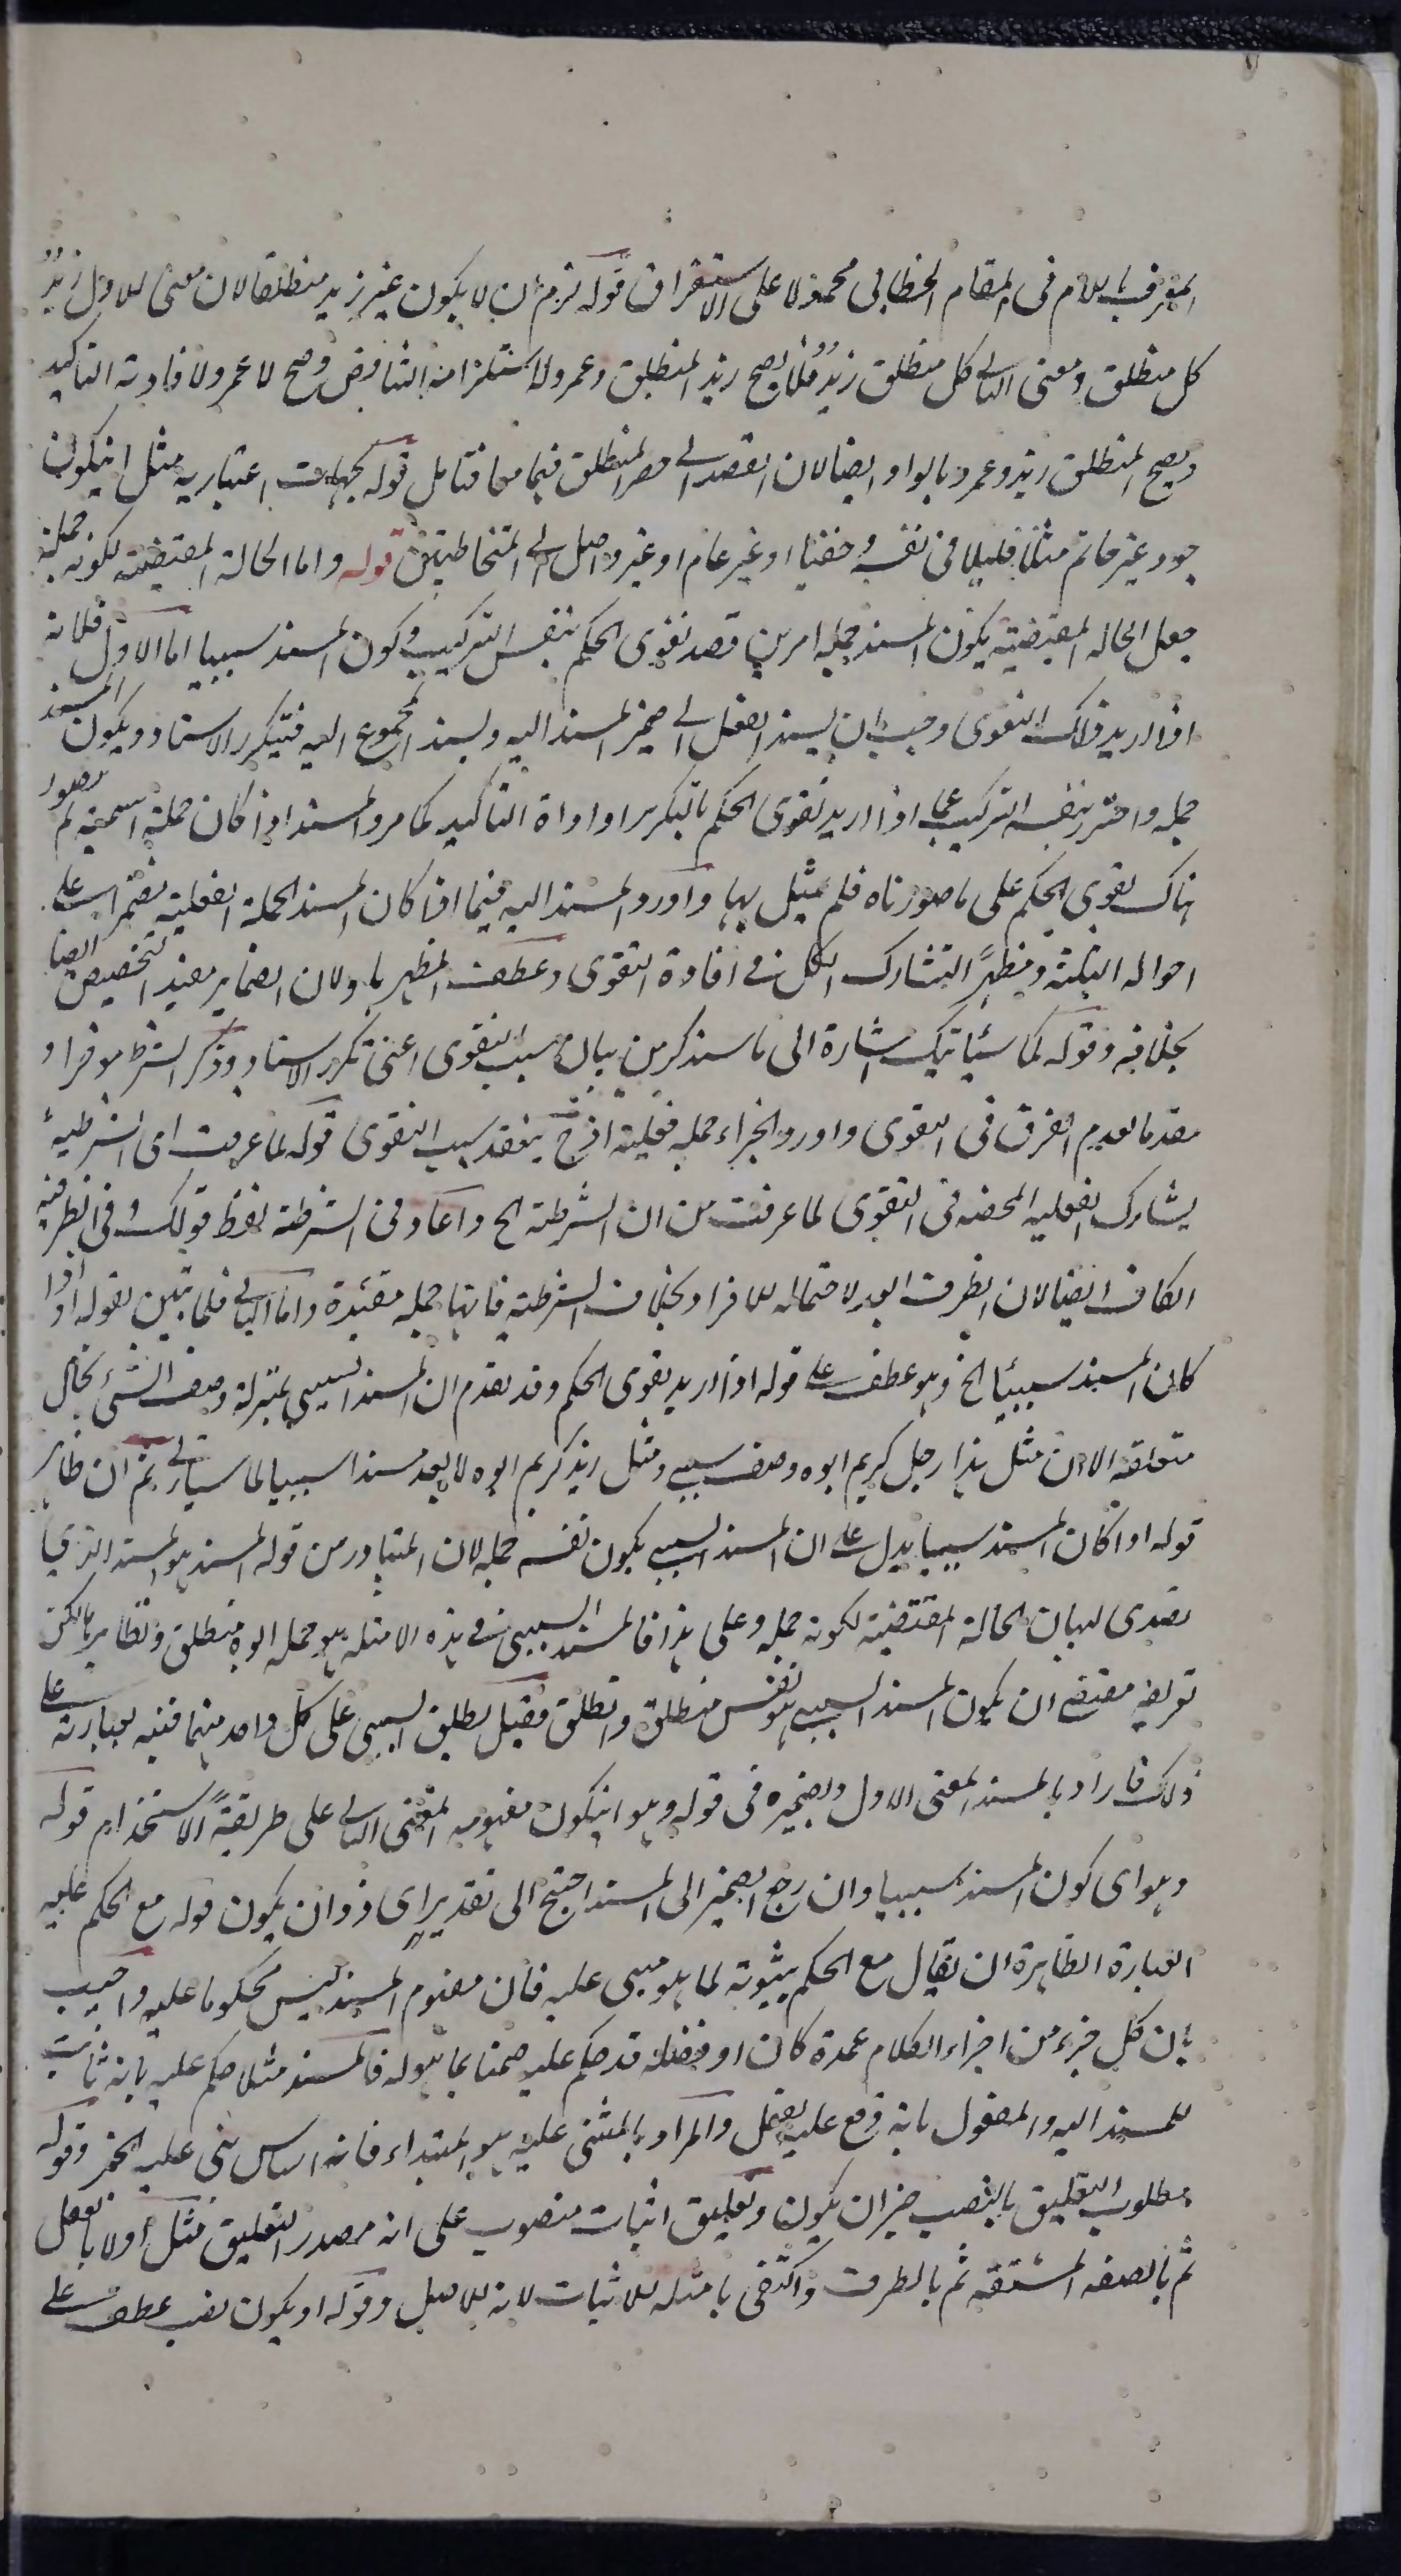 المعرف باللام فى المقام الخطابى محمولا على الاستغراق قوله لزم ان لا يكون غير زيد منطلقا لان معنى الاول زيد
كل منطلق ومعنى الثانى كل منطلق زيد فلا يصح زيد المنطلق وعمرو لاستلزامه التناقض وصح لا عمرو لافادته التاكيد
ويصح المنطلق زيد وعمرو بالواو ايضا لان القصد الى حصر المنطلق فيهما معا فتامل قوله بجهات اعتبارية مثل ان يكون
جود غير حاتم مثلا قليلا فى نفسه وخفيا او غير عام او غير واصل الى المتخاطبين قوله واما الحالة المقتضية لكونه جملة
جعل الحالة المقتضية يكون المسند جملة امرين قصد تقوى الحكم بنفس التركيب وكون المسند سببيا اما الاول فلانه
اذا اريد ذلك التقوى وجب ان يسند الفعل الى ضمير المسند اليه ويسند المجموع اليه فيتكرر الاسناد ويكون المسند
جملة واحترز بنفس التركيب عما اذا اريد تقوى الحكم بالتكرير او اداة التاكيد كما مر والمسند اذا كان جملة اسمية لم يتصور
هناك تقوى الحكم على ما صورناه فلم يمثل بها واورد المسند اليه فيما اذا كان المسند الجملة الفعلية مضمرا على
احواله الثلثة ومظهرا لتشارك الكل فى افادة التقوى وعطف المظهر باو لان الضماير مفيد التخصيص ايضا
بخلافه وقوله كما سياتيك اشارة الى ما سنذكر من بيان سبب التقوى اعنى تكرر الاسناد وذكر الشرط موخرا و
مقدما لعدم الفرق فى التقوى واورد الجزاء جملة فعلية اذ ح ينعقد سبب التقوى قوله لما عرفت اى الشرطية
يشارك الفعلية المحضة فى التقوى لما عرفت من ان الشرطية الخ واعاد فى الشرطية لفظ قولك وفى الظرفية
الكاف ايضا لان الظرف ابعد لاحتماله للافراد بخلاف الشرطية فانها جملة مقيدة واما الثانى فلما تبين بقوله او اذا
كان المسند سببيا الخ وهو عطف على قوله اذا اريد تقوى الحكم وقد تقدم ان المسند السببى بمنزلة وصف الشئ بحال
متعلقه الا ان مثل هذا رجل كريم ابوه وصف سببى ومثل زيد كريم ابوه لا يعد مسندا سببيا لما سياتى ثم ان ظاهر
قوله او اذا كان المسند سببيا يدل على ان المسند السببى يكون نفسه جملة لان المتبادر من قوله المسند هو المسند الذى
تصدى لبيان الحالة المقتضية لكونه جملة وعلى هذا فالمسند السببى فى هذه الامثلة هو جملة ابوه منطلق ونظايرها لكن
تعريفه مقتض ان يكون المسند السببى هو نفس منطلق وانطلق فقيل يطلق السببى على كل واحد منهما فنبه بعبارته على
ذلك فاراد بالمسند المعنى الاول وبضميره فى قوله وهو ان يكون مفهومه المعنى الثانى على طريقة الاستخدام قوله
وهو اى كون المسند سببيا وان رجع الضمير الى المسند احتيج الى تقدير اى ذو ان يكون قوله مع الحكم عليه
العبارة الظاهرة ان يقال مع الحكم بثبوته لما هو مبنى عليه فان مفهوم المسند ليس محكوما عليه واجيب
بان كل جزء من اجزاء الكلام عمدة كان او فضلة قد حكم عليه ضمنا بما هو له فالمسند مثلا حكم عليه بانه ثابت
للمسند اليه والمفعول بانه وقع عليه الفعل والمراد بالمبنى عليه هو المبتداء فانه اساس بنى عليه الخبر وقوله
مطلوب التعليق بالنصب خبر ان يكون وتعليق اثبات منصوب على انه مصدر التعليق مثل اولا بالفعل
ثم بالصفة المشتقة ثم بالظرف واكتفى بامثلة للاثبات لانه للاصل وقوله او يكون نصب عطف على